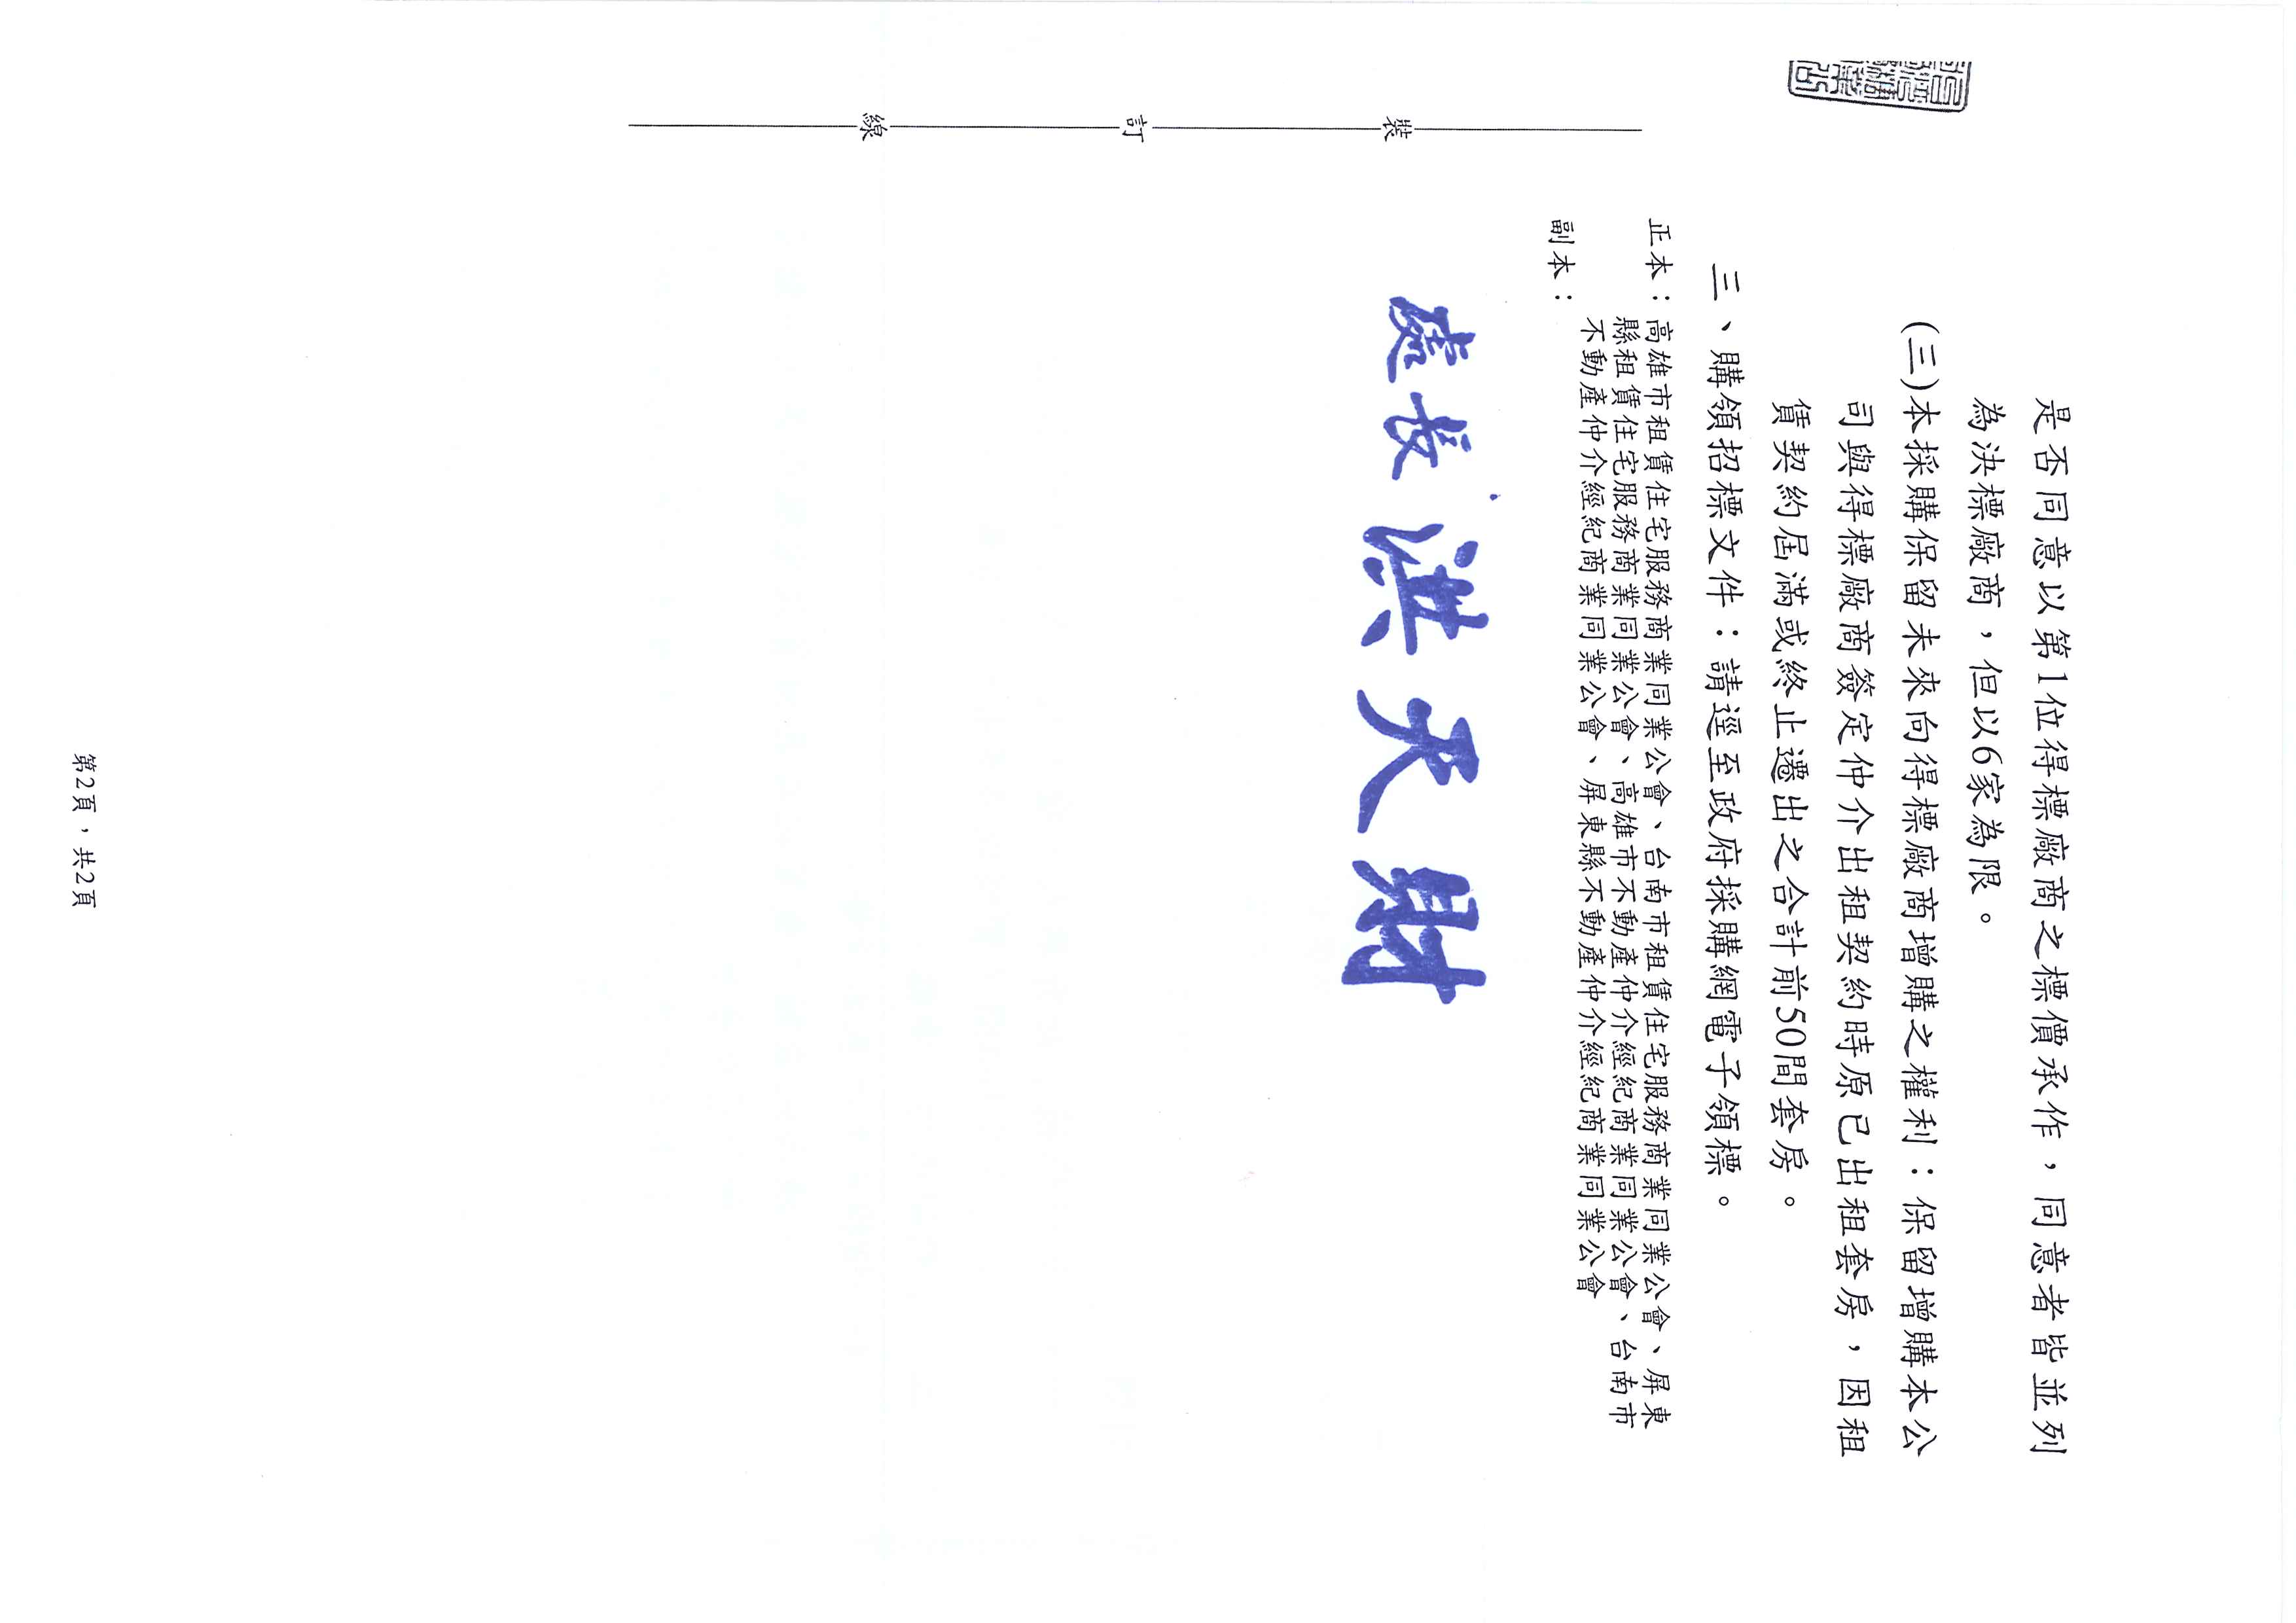 是否同意以第1位得標廠商之標價承作，同意者皆並列
為決標廠商，但以6家為限。
(三)本採購保留未來向得標廠商增購之權利：保留增購本公
司與得標廠商簽定仲介出租契約時原已出租套房，因租
賃契約屆滿或終止遷出之合計前50間套房。
三、購領招標文件：請逕至政府採購網電子領標。
正本：高雄市租賃住宅服務商業同業公會、台南市租賃住宅服務商業同業公會、屏東
縣租賃住宅服務商業同業公會、高雄市不動產仲介經紀商業同業公會、台南市
不動產仲介經紀商業同業公會、屏東縣不動產仲介經紀商業同業公會
副本：
處長 洪天財
裝
訂
線
第2頁，共2頁